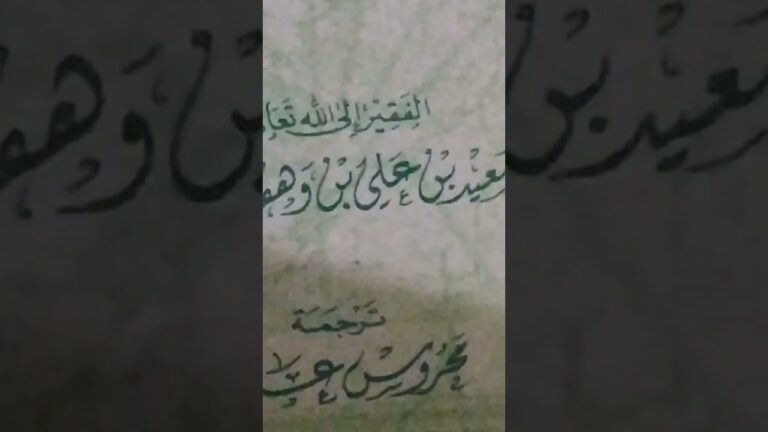 الفَقِيرْ إلىَ الله تَعَا
عَيْد بْن عَلي بْن وَهف
تَرْجَمَة
مَحْرُوسْ عَبـ